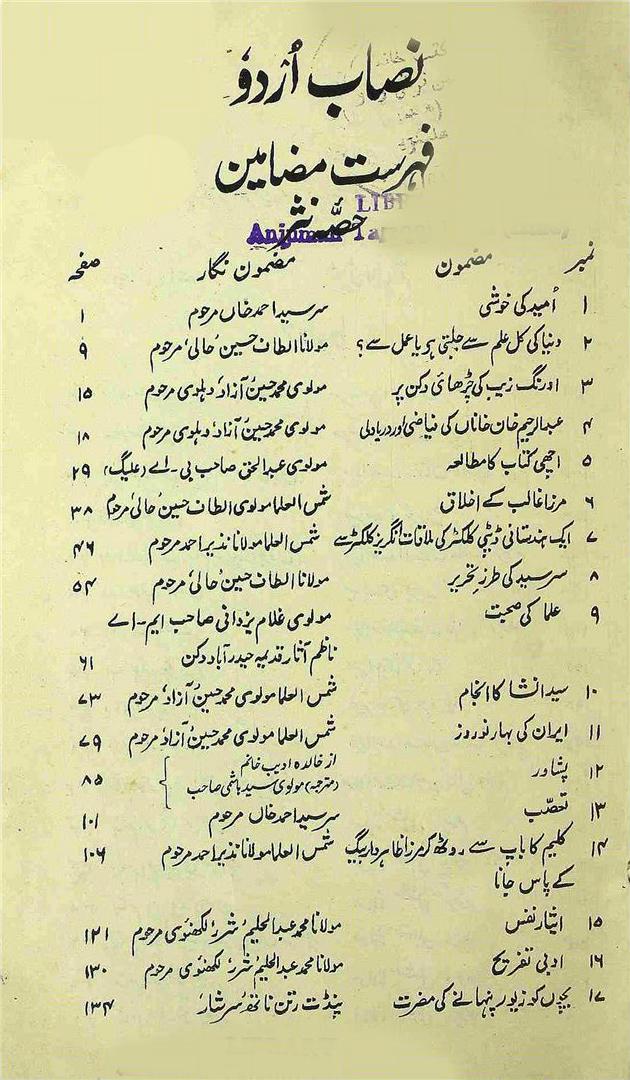 نصاب اُردو
فہرست مضامین
حصّہ نثر
LIB
Anjuman Ta
نمبر مضمون مضمون نگار صفحہ
۱ اُمید کی خوشی سرسید احمد خاں مرحوم ۱
۲ دنیا کی کل علم سے چلتی ہے یا عمل سے؟ مولانا الطاف حسین حالیؔ مرحوم ۹
۳ اورنگ زیب کی چڑھائی دکن پر مولوی محمد حسین آزادؔ دہلوی مرحوم ۱۵
۴ عبدالرحیم خان خاناں کی فیاضی اور دریا دلی مولوی محمد حسین آزادؔ دہلوی مرحوم ۱۸
۵ اچھی کتاب کا مطالعہ مولوی عبدالحق صاحب بی-اے (علیگ) ۲۹
۶ مرزا غالب کے اخلاق شمس العلما مولوی الطاف حسین حالیؔ مرحوم ۳۸
۷ ایک ہندستانی ڈپٹی کلکٹر کی ملاقات انگریز کلکٹر سے شمس العلما مولانا نذیر احمد مرحوم ۴۶
۸ سرسید کی طرز تحریر مولانا الطاف حسین حالیؔ مرحوم ۵۴
۹ علما کی صحبت مولوی غلام یزدانی صاحب ایم-اے
ناظم آثار قدیمہ حیدرآباد دکن ۶۱
۱۰ سید انشا کا انجام شمس العلما مولوی محمد حسین آزادؔ مرحوم ۷۳
۱۱ ایران کی بہار نوروز شمس العلما مولوی محمد حسین آزادؔ مرحوم ۷۹
۱۲ پشاور از خالدہ ادیب خانم
(مترجمہ) مولوی سید ہاشمی صاحب ۸۵
۱۳ تعصّب سرسید احمد خاں مرحوم ۱۰۱
۱۴ کلیم کا باپ سے روٹھ کر مرزا ظاہردار بیگ شمس العلما مولانا نذیر احمد مرحوم ۱۰۶
کے پاس جانا
۱۵ ایثار نفس مولانا محمد عبدالحلیم شررؔ لکھنوی مرحوم ۱۲۱
۱۶ ادبی تفریح مولانا محمد عبدالحلیم شررؔ لکھنوی مرحوم ۱۳۰
۱۷ بچوں کو زیور پہنانے کی مضرت پنڈت رتن ناتھ سرشارؔ ۱۳۴